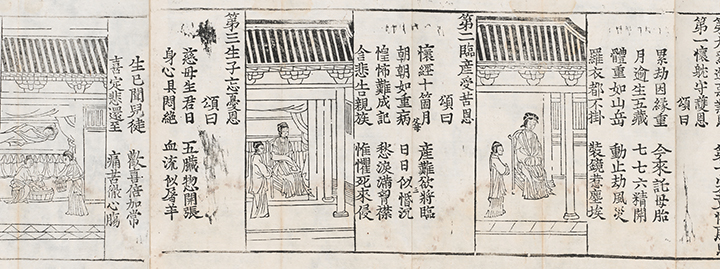 第一懷躭守護恩
頌曰
累劫因緣重 今來託母胎
月逾生五藏 七七六精開
體重如山岳 動止劫風災
羅衣都不掛 裝鏡惹塵埃
第二臨產受苦恩
頌曰
懷經十箇月 產難欲將臨
朝朝如重病 日日似惛沉
惶怖難成記 愁淚滿胷襟
含悲告親族 惟懼死來侵
第三生子忘憂恩
頌曰
慈母生君日 五臟惣開張
身心俱悶絕 血流似屠羊
生已聞兒健 歡喜倍加常
喜定悲還至 痛苦徹心膓